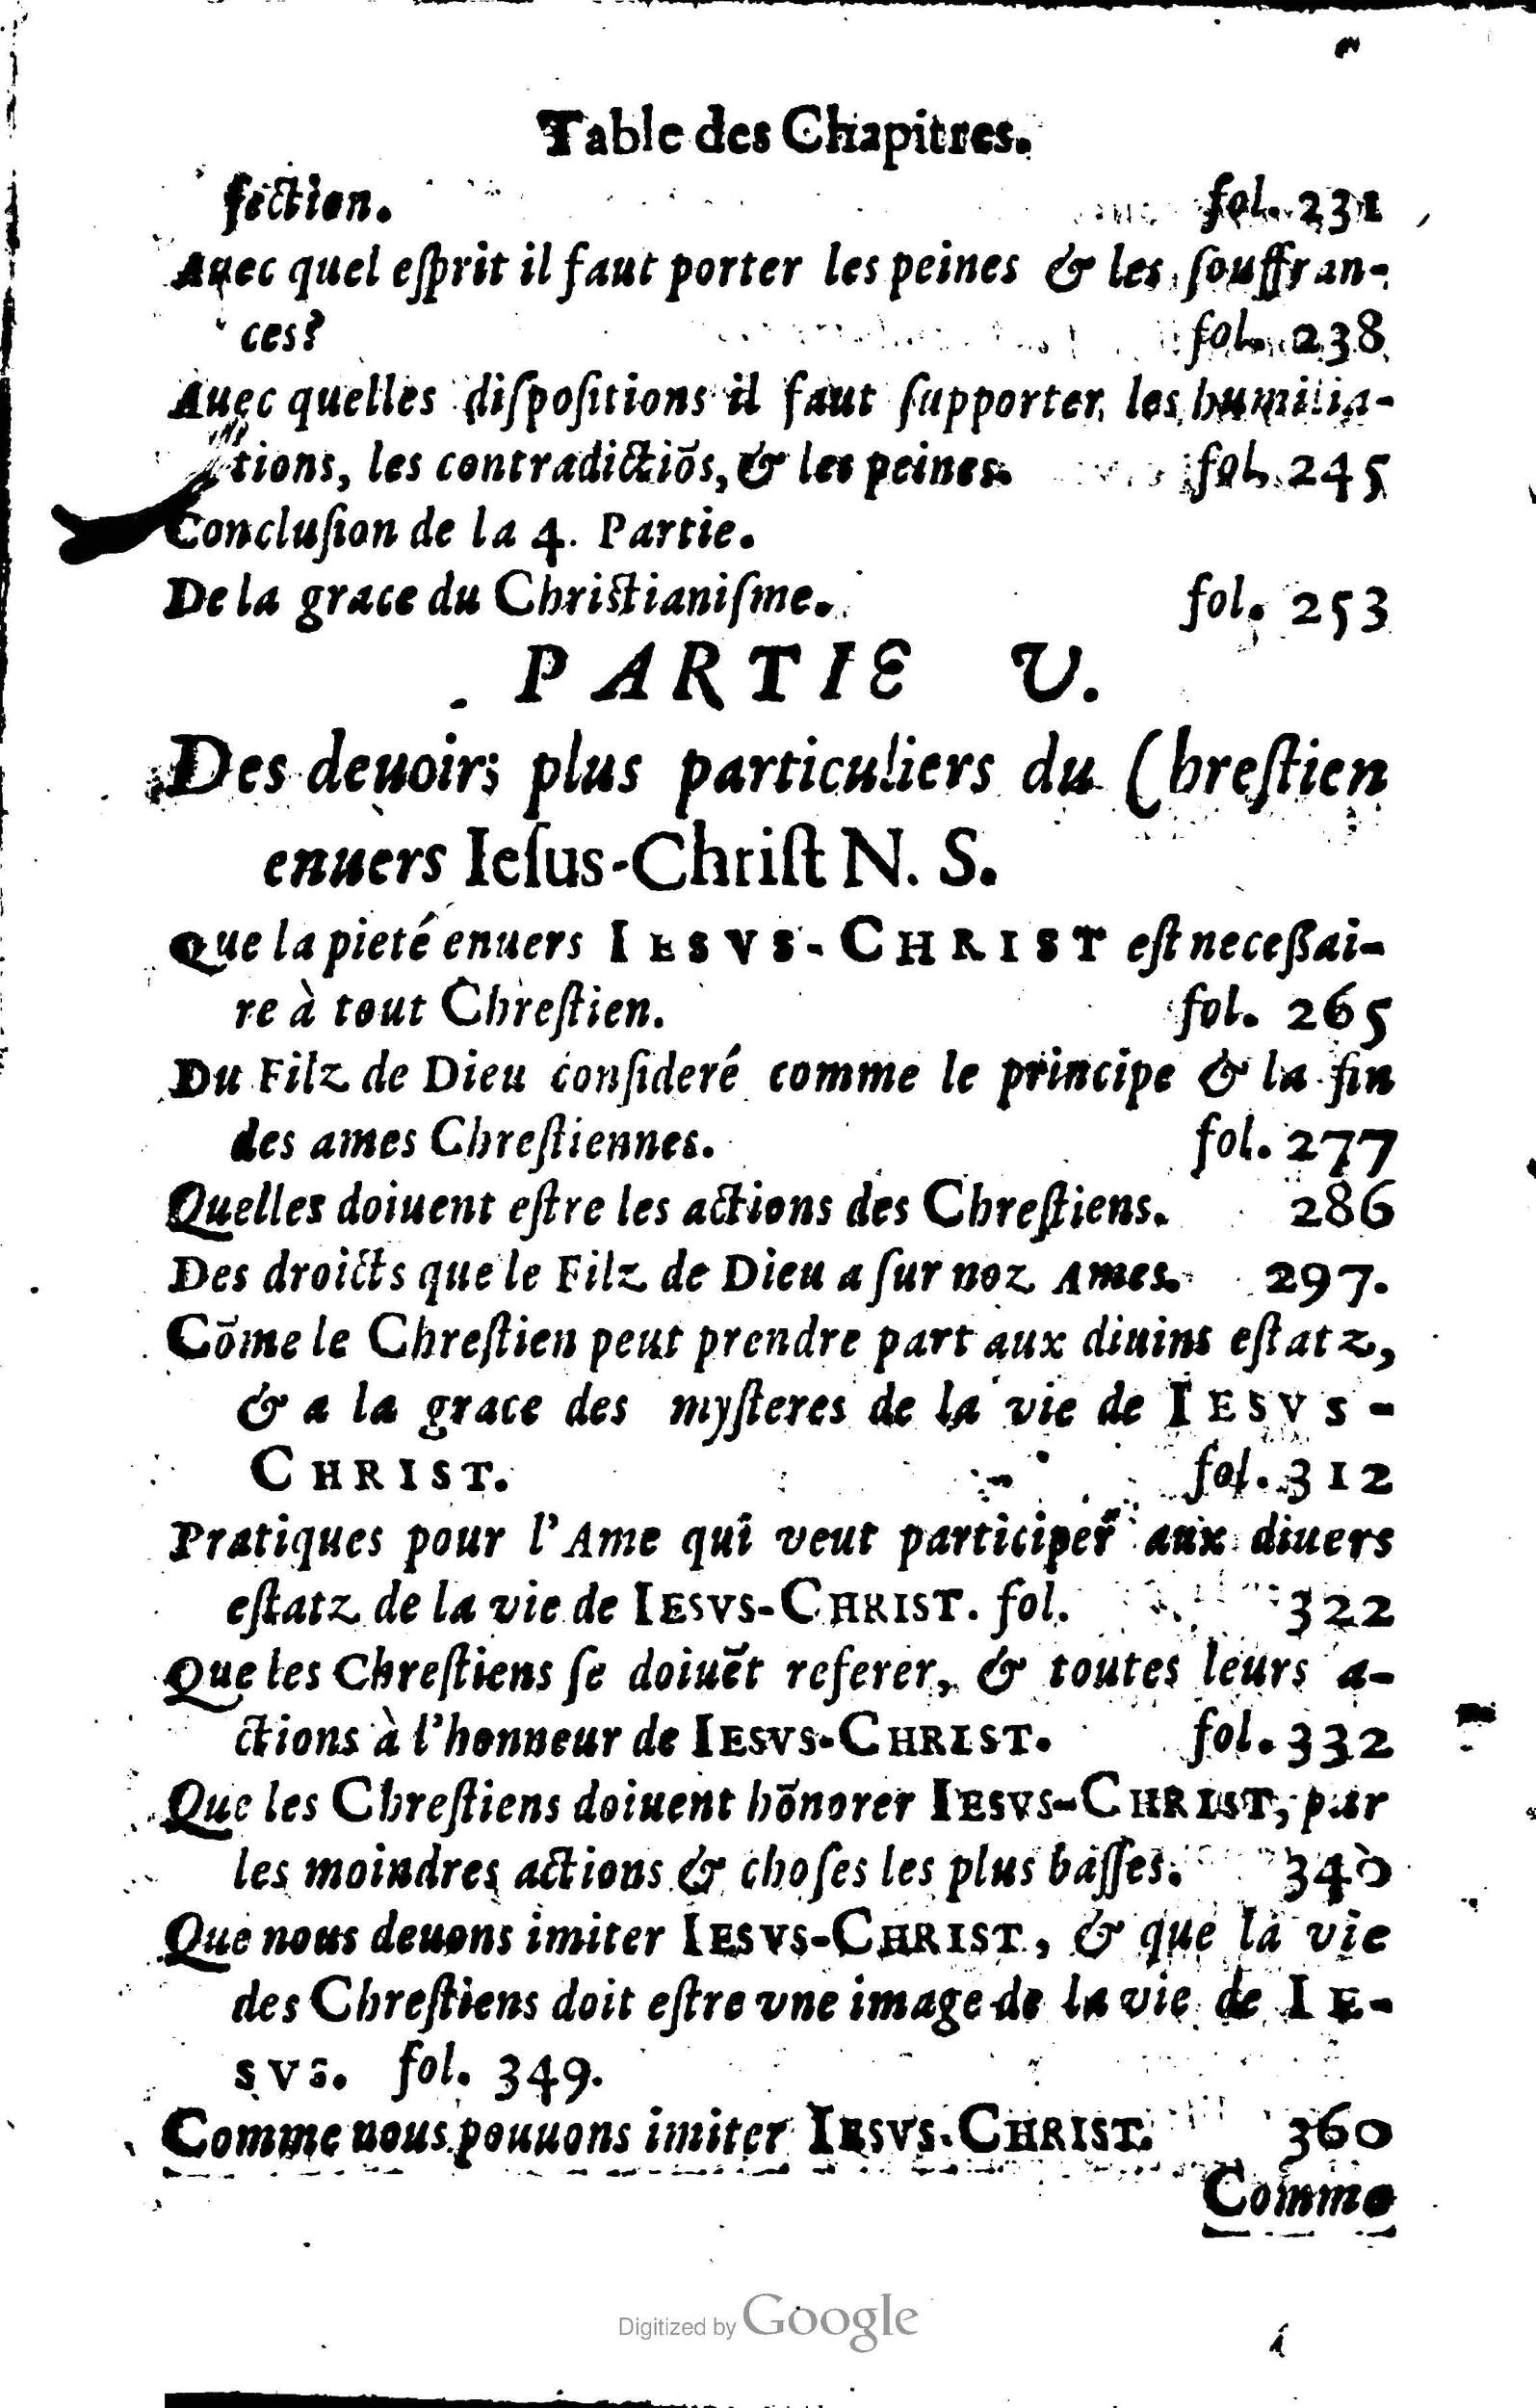 Table des Chapitres.
fection. fol. 231
Auec quel eſprit il faut porter les peines & les ſouffran-
ces? fol. 238
Auec quelles diſpoſitions il faut ſupporter les humilia-
tions, les contradictiõs, & les peines. fol. 245
Concluſion de la 4. Partie.
De la grace du Chriſtianiſme. fol. 253
PARTIE V.
Des deuoirs plus particuliers du Chreſtien
enuers Ieſus-Chriſt N. S.
Que la pieté enuers IESVS-CHRIST eſt neceßai-
re à tout Chreſtien. fol. 265
Du Filz de Dieu conſideré comme le principe & la fin
des ames Chreſtiennes. fol. 277
Quelles doiuent eſtre les actions des Chreſtiens. 286
Des droicts que le Filz de Dieu a ſur noz Ames. 297.
Cõme le Chreſtien peut prendre part aux diuins eſtatz,
& a la grace des myſteres de la vie de IESVS-
CHRIST. fol. 312
Pratiques pour l'Ame qui veut participer aux diuers
eſtatz de la vie de IESVS-CHRIST. fol. 322
Que les Chreſtiens ſe doiuẽt referer, & toutes leurs a-
ctions à l'honneur de IESVS-CHRIST. fol. 332
Que les Chreſtiens doiuent hõnorer IESVS-CHRIST, par
les moindres actions & choſes les plus baſſes. 340
Que nous deuons imiter IESVS-CHRIST, & que la vie
des Chreſtiens doit eſtre vne image de la vie de IE-
SVS. fol. 349.
Comme nous pouuons imiter IESVS-CHRIST. 360
Comme
Digitized by Google